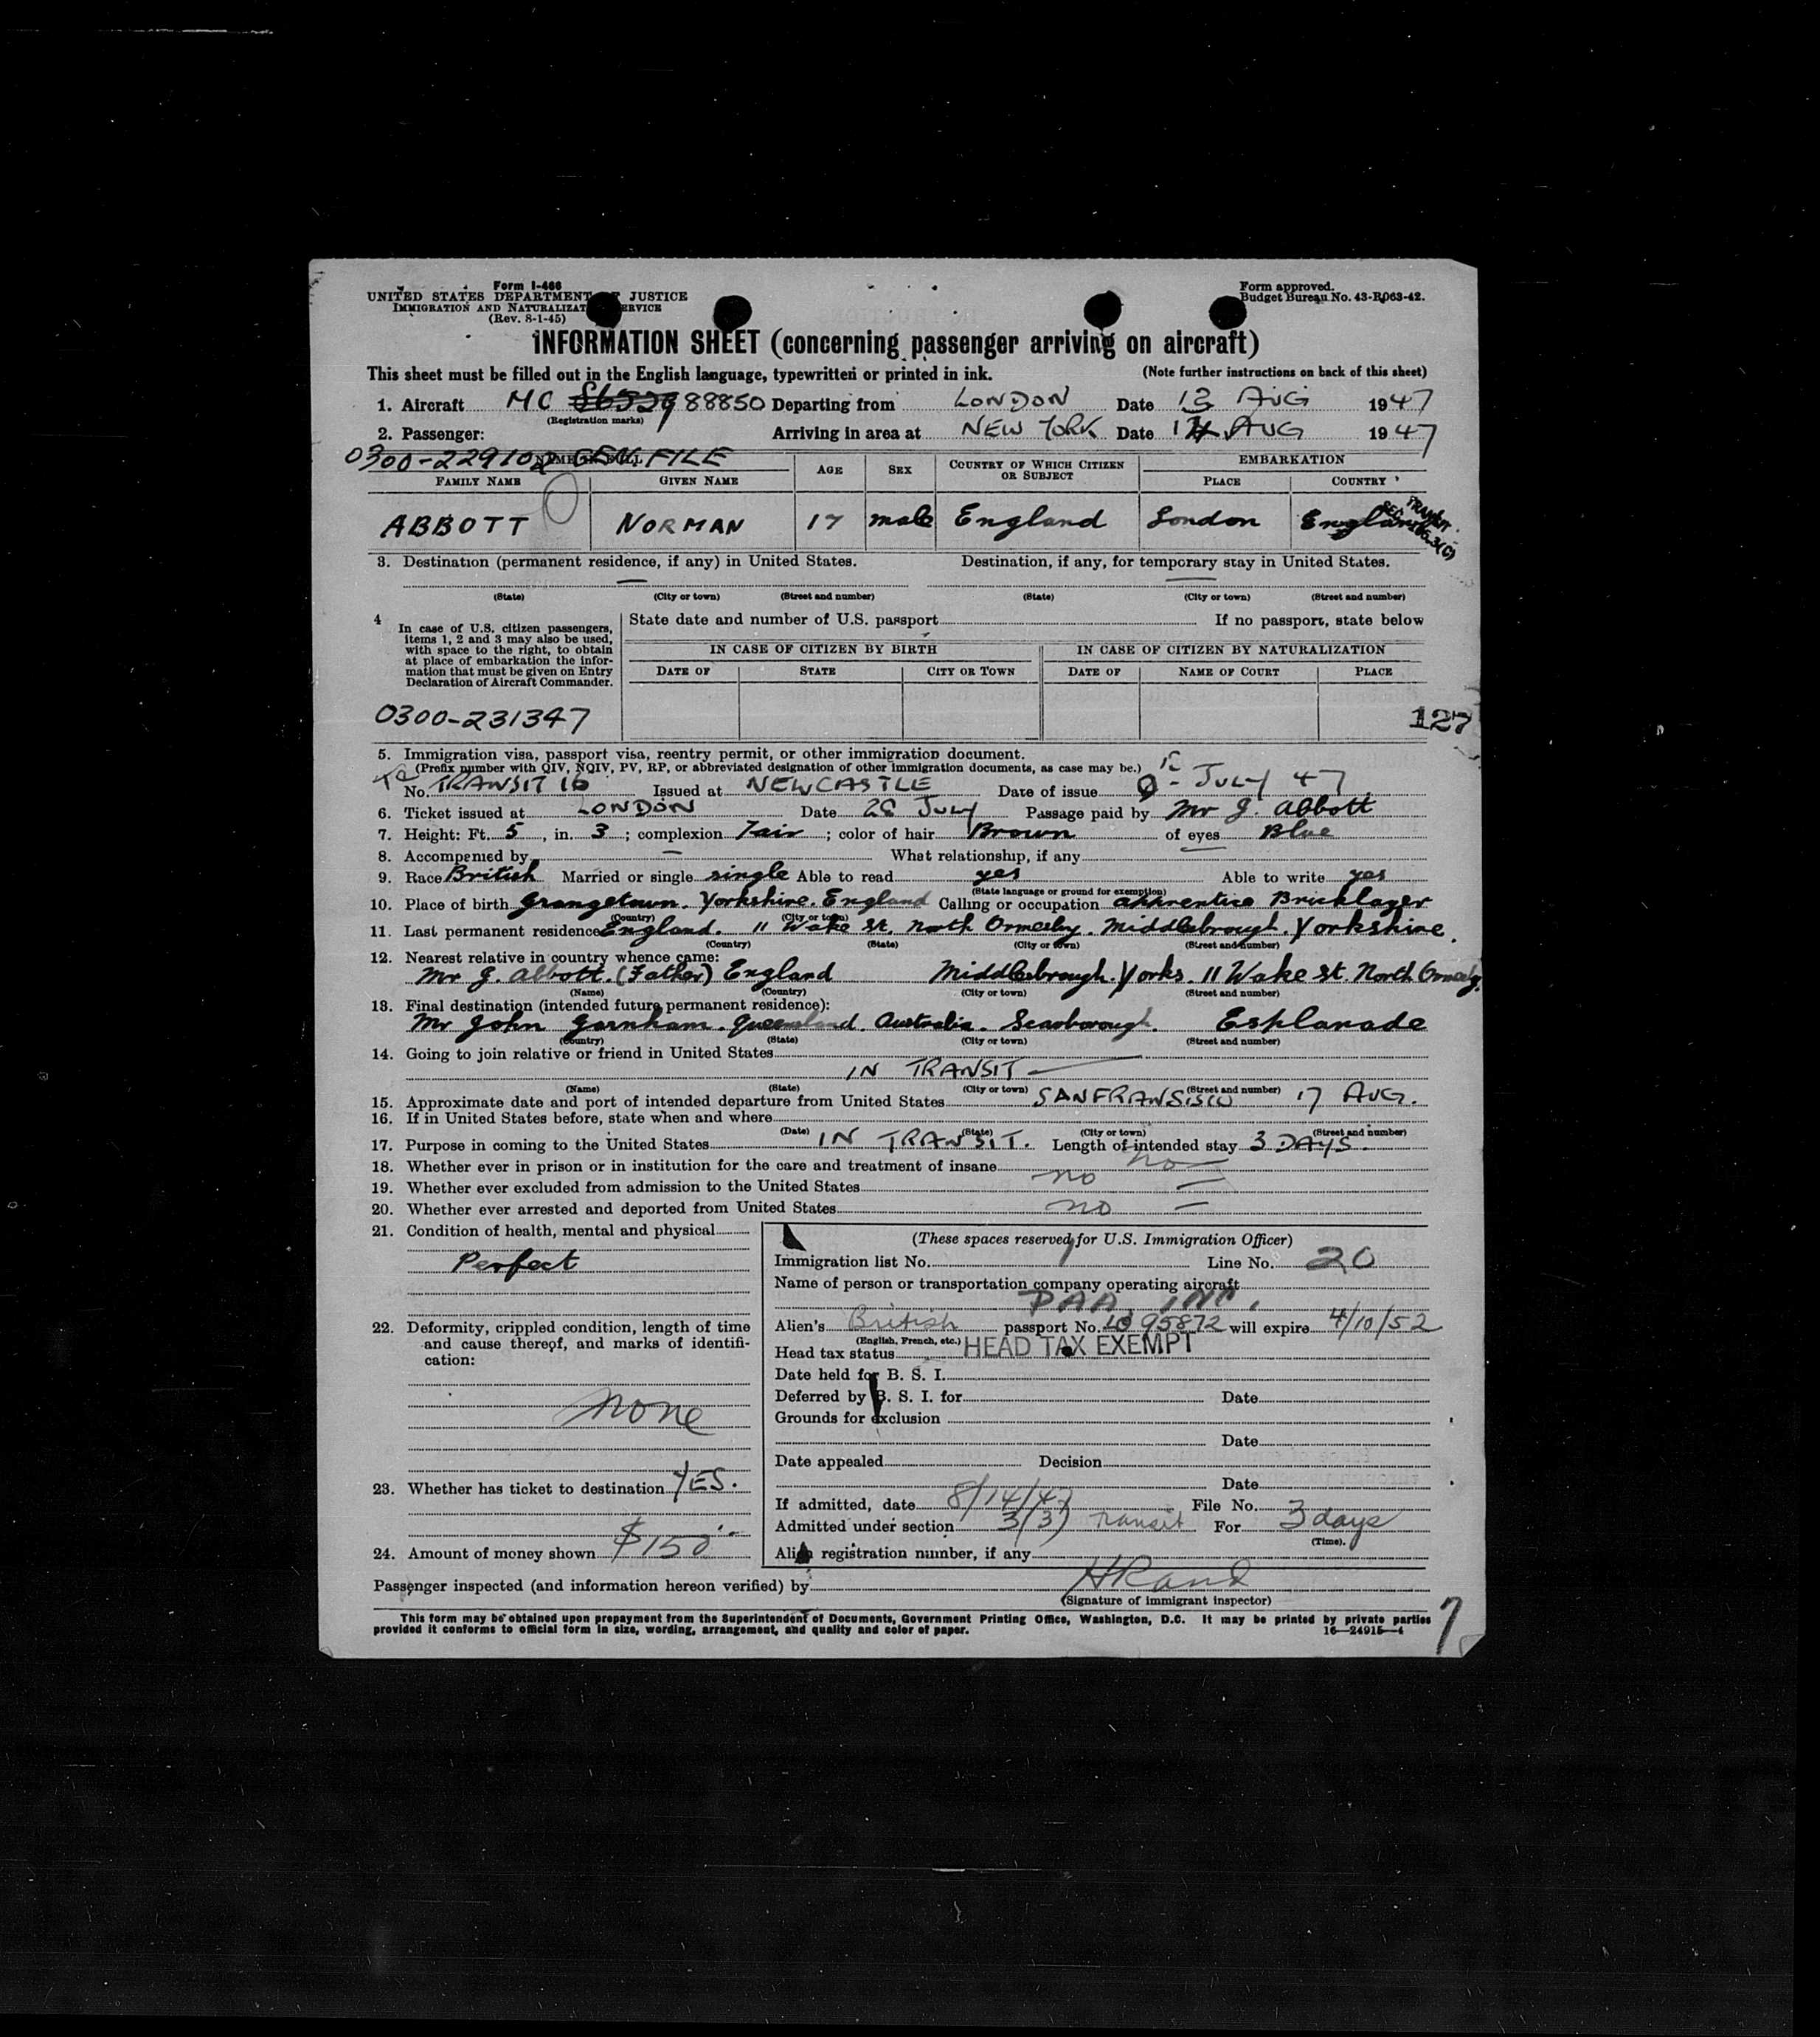 Form I-466
UNITED STATES DEPARTMENT OF JUSTICE
IMMIGRATION AND NATURALIZATION SERVICE
(Rev. 8-1-45)
Form approved.
Budget Bureau No. 43-R063-42.
INFORMATION SHEET (concerning passenger arriving on aircraft)
This sheet must be filled out in the English language, typewritten or printed in ink. (Note further instructions on back of this sheet)
1. Aircraft MC 88850 Departing from LONDON Date 13 AUG 1947
(Registration marks)
2. Passenger: Arriving in area at NEW YORK Date 14 AUG 1947
0300-229102 GEN. FILE
NAME IN FULL AGE SEX COUNTRY OF WHICH CITIZEN OR SUBJECT EMBARKATION
FAMILY NAME GIVEN NAME PLACE COUNTRY
ABBOTT NORMAN 17 male England London England
TRANSIT
3. Destination (permanent residence, if any) in United States. Destination, if any, for temporary stay in United States.
(State) (City or town) (Street and number) (State) (City or town) (Street and number)
4 In case of U.S. citizen passengers, items 1, 2 and 3 may also be used, with space to the right, to obtain at place of embarkation the information that must be given on Entry Declaration of Aircraft Commander.
State date and number of U.S. passport If no passport, state below
IN CASE OF CITIZEN BY BIRTH IN CASE OF CITIZEN BY NATURALIZATION
DATE OF STATE CITY OR TOWN DATE OF NAME OF COURT PLACE
0300-231347
127
5. Immigration visa, passport visa, reentry permit, or other immigration document.
(Prefix number with QIV, NQIV, PV, RP, or abbreviated designation of other immigration documents, as case may be.)
No. TRANSIT 16 Issued at NEWCASTLE Date of issue JULY 47
6. Ticket issued at LONDON Date 28 July Passage paid by Mr J. Abbott
7. Height: Ft. 5, in. 3; complexion Fair; color of hair Brown of eyes Blue
8. Accompanied by — What relationship, if any —
9. Race British Married or single single Able to read yes Able to write yes
(State language or ground for exemption)
10. Place of birth Grangetown. Yorkshire. England Calling or occupation apprentice Bricklayer
(Country) (City or town)
11. Last permanent residence England. 11 Wake St. North Ormesby. Middlesbrough. Yorkshire.
(Country) (State) (City or town) (Street and number)
12. Nearest relative in country whence came:
Mr J. Abbott. (Father) England Middlesbrough. Yorks. 11 Wake St. North Ormesby.
(Name) (Country) (City or town) (Street and number)
13. Final destination (intended future permanent residence):
Mr John Garnham. Queensland. Australia. Scarborough. Esplanade
(Country) (State) (City or town) (Street and number)
14. Going to join relative or friend in United States
IN TRANSIT —
(Name) (State) (City or town) (Street and number)
15. Approximate date and port of intended departure from United States SANFRANSISCO 17 AUG.
16. If in United States before, state when and where
(Date) (State) (City or town) (Street and number)
17. Purpose in coming to the United States IN TRANSIT. Length of intended stay 3 DAYS.
18. Whether ever in prison or in institution for the care and treatment of insane no —
19. Whether ever excluded from admission to the United States no —
20. Whether ever arrested and deported from United States no —
21. Condition of health, mental and physical
Perfect
22. Deformity, crippled condition, length of time and cause thereof, and marks of identification:
none
23. Whether has ticket to destination YES.
24. Amount of money shown $150
(These spaces reserved for U.S. Immigration Officer)
Immigration list No. 1 Line No. 20
Name of person or transportation company operating aircraft
PAA, INC.
Alien's British passport No. 95872 will expire 4/10/52
(English, French, etc.)
Head tax status HEAD TAX EXEMPT
Date held for B. S. I.
Deferred by B. S. I. for Date
Grounds for exclusion
Date
Date appealed Decision
Date
If admitted, date 8/14/47 File No.
Admitted under section 3(3) Transit For 3 days
(Time).
Alien registration number, if any
Passenger inspected (and information hereon verified) by HRand
(Signature of immigrant inspector)
This form may be obtained upon prepayment from the Superintendent of Documents, Government Printing Office, Washington, D.C. It may be printed by private parties
provided it conforms to official form in size, wording, arrangement, and quality and color of paper. 16—24915-4
7